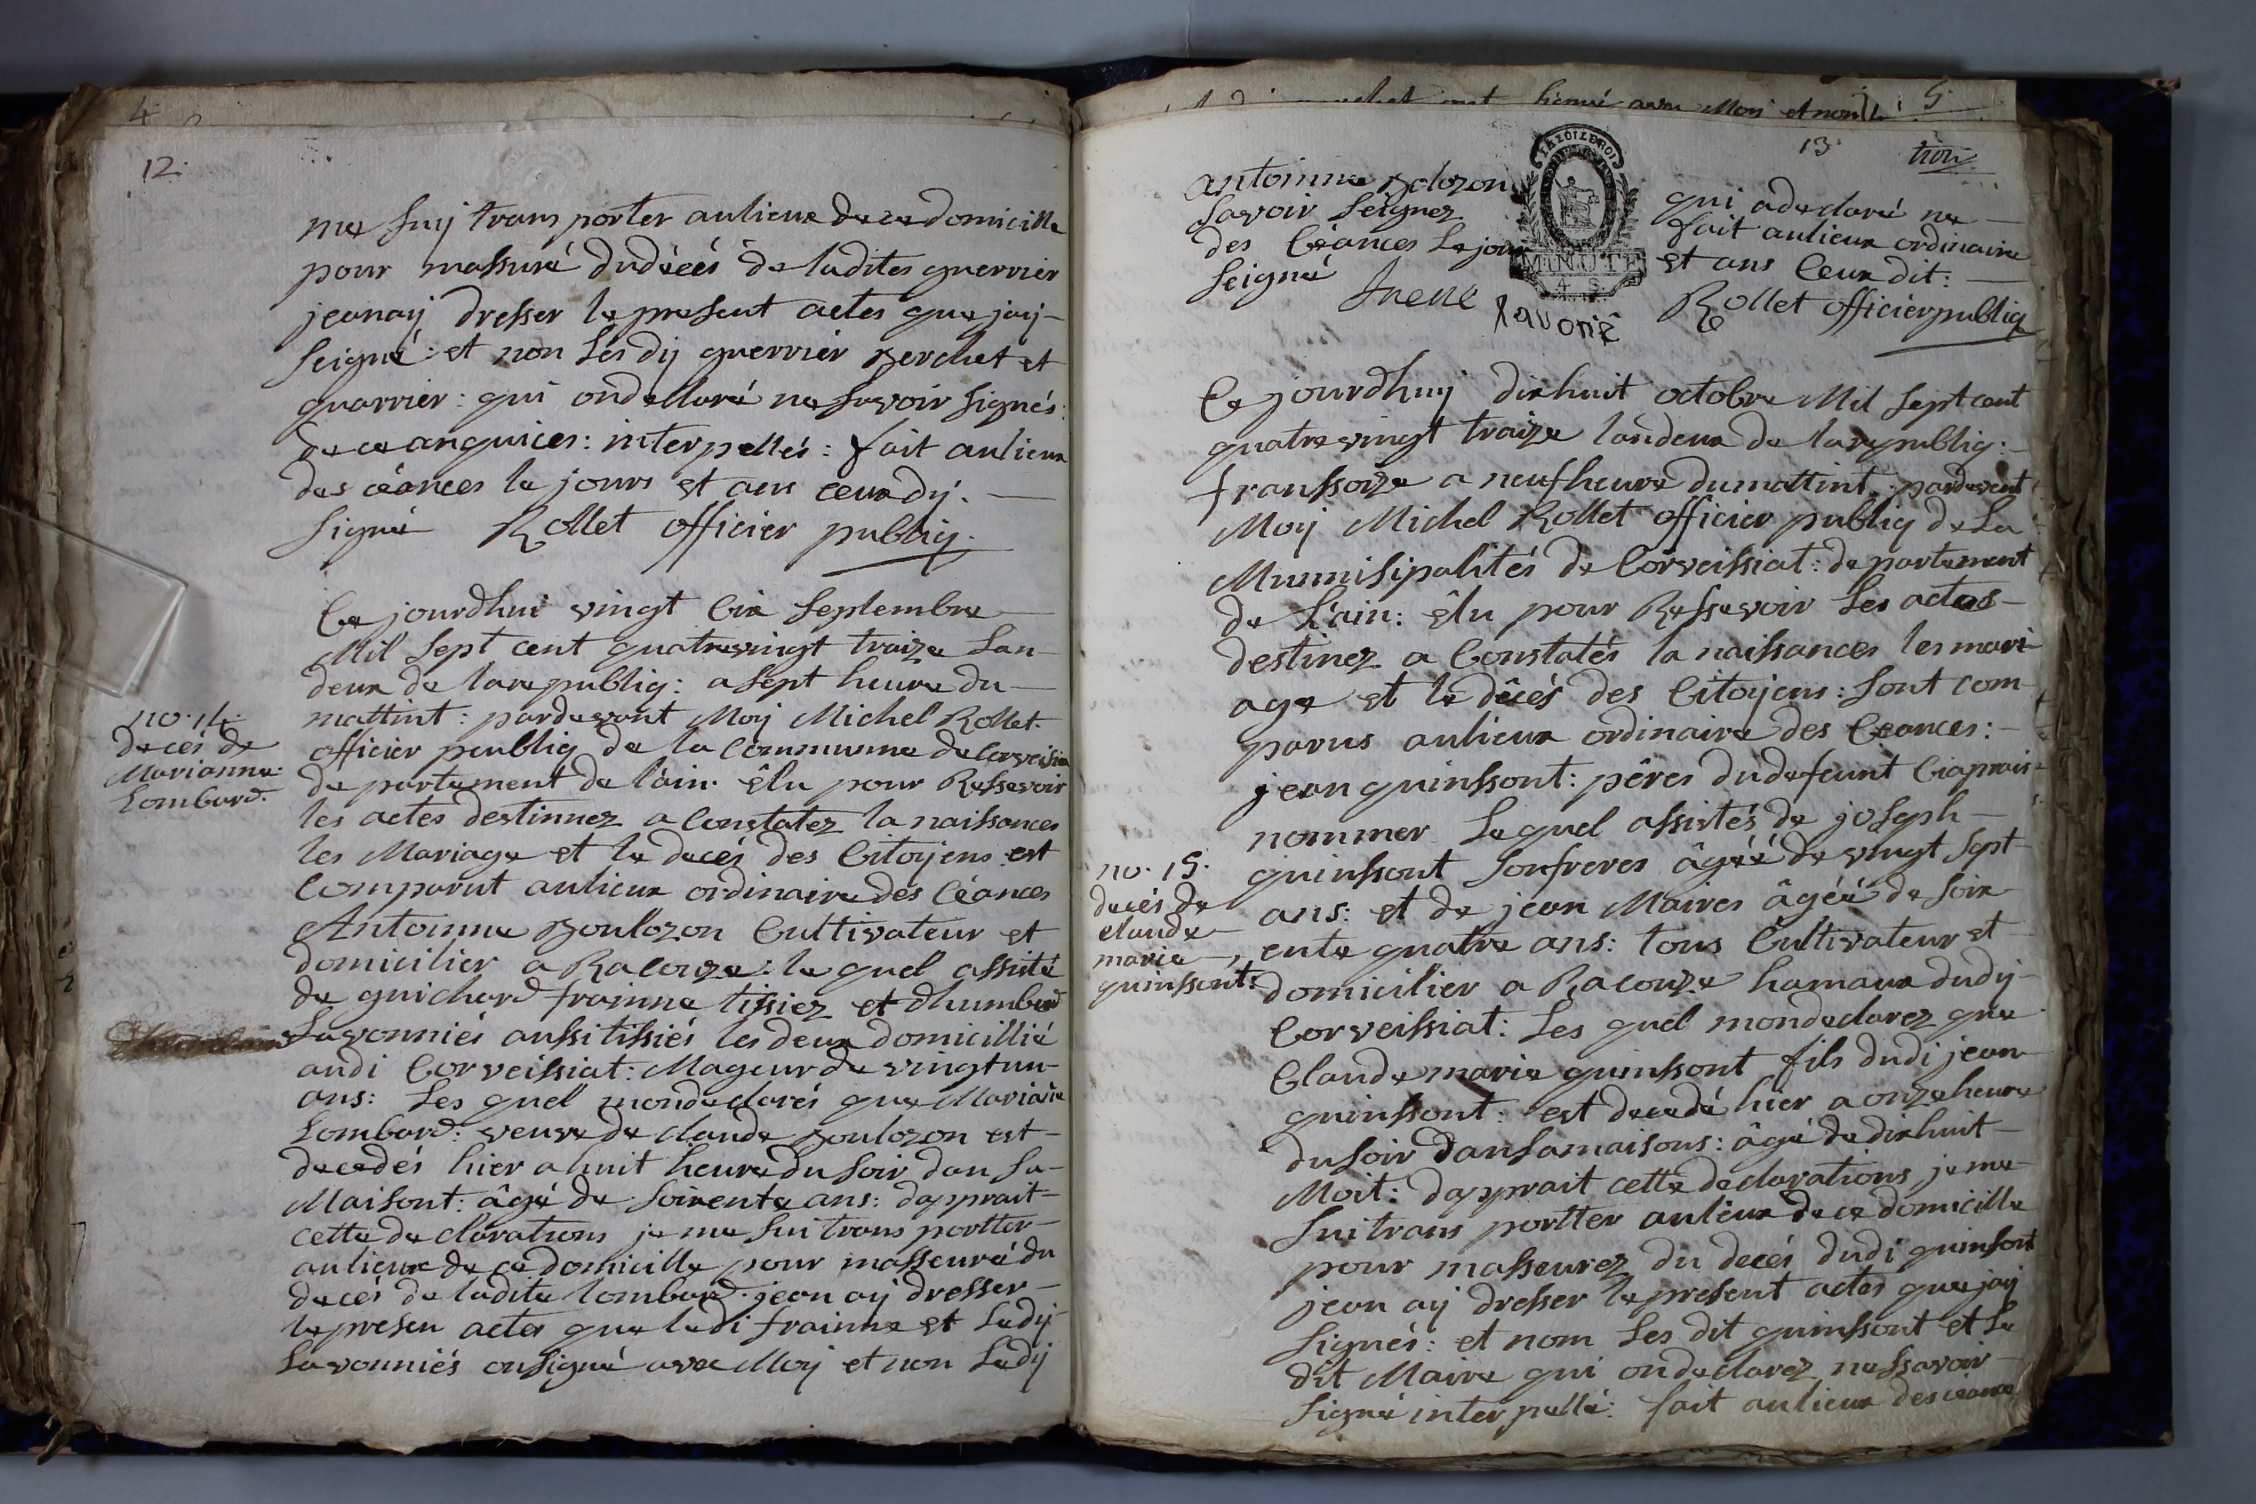 4
12.
me suij transporter aulieux de ce domicille
pour massuré dudécés de ladites guerrier
jeanaij dresser le present actes que jaij
seigné: et non Les dij guerrier Berchet et
guarrier: qui ondellaré ne savoir signés:
de ce anquices: interpellés: fait aulieux
des céances le jours et aen ceux dij.
signé Rollet officier publiq.
Ce jourdhui vingt Cix septembre
Mil sept cent quatrevingt traize Lan
deux de larepubliq: a sept heure du
mattint: pardevant Moij Michel Rollet
officier publiq de la Commune de Corveisia
departement de lain: êlu pour Ressevoir
les actes destinnez a Constatez la naissances
les Mariage et le decés des Citoijens est
Comparut aulieux ordinaire des Céances
Antoinne Boulozon Cultivateur et
domicilier a Racouze: le quel assité
de guichard frainne tissiez et dhumberd
Lavonniés aussi tissiés les deux domicillié
audi Corveissiat: Mageur de vingt un
ans: Les quel mondedarés que Marianne
Lombard: veuve de claude Boulozon est
decedés hier a huit heure du soir dan sa
Maisont: âgé de soixente ans: dapprait
cette declarations je me sui trans portter
aulieux de ce domicille pour masseuré du
decés de ladite lombard. jean aij dresser
le presen actes que ledi frainne et Ledij
Lavonniés onsigné avec Moij et non Ledij
no. 14.
decés de
Marianne
Lombard.
signé avec Moij et non L
5
13
trois
LA LOI LE ROI
MINUTE
4 S.
antoinne Bolozon qui adedaré ne
savoir seignez fait aulieux ordinaire
des Céances Le jour et ans Ceux dit:
seigné frene lavoniê Rollet officier publiq
Ce jourdhuij dixhuit octobre Mil sept cent
quatrevingt traize landeux de larepubliq:
franssoize a neuf heure dumattint pardevent
Moij Michel Rollet officier publiq de La
Munnisipalités de Corveissiat: departement
de L'ain: êlu pour Ressevoir Les actes
destinez a Constatés la naissances les mari
age et le dêcés des Citoijens: sont com
parus aulieux ordinaire des Ceances:
jean guinssont: pêres dudefeunt Ciaprais
nommer Lequel assistés de joseph
guinssont son freres âgéé de vingt sept
ans: et de jean Maires âgéé de soix
ente quatre ans: tous Cultivateur et
domicilier a Racouze hamaux dudij
Corveissiat: Les quel mondedarez que
Claude marie guinssont fils dudi jean
guinssont: est decedé hier a onze heure
du soir dans samaisons: âgé de dixhuit
Moit: dapprait cette dedarations, je me
sui trans portter aulieux de ce domicille
pour masseurez du decés dudi guinsont
jean aij dresser le present actes que jaij
signés: et nom Les dit guinssont et Le
dit Maire qui ondedarez nessavoir
signé interpellé: fait aulieux des ceance
no. 15.
decés de
claude
marie
guinssont: